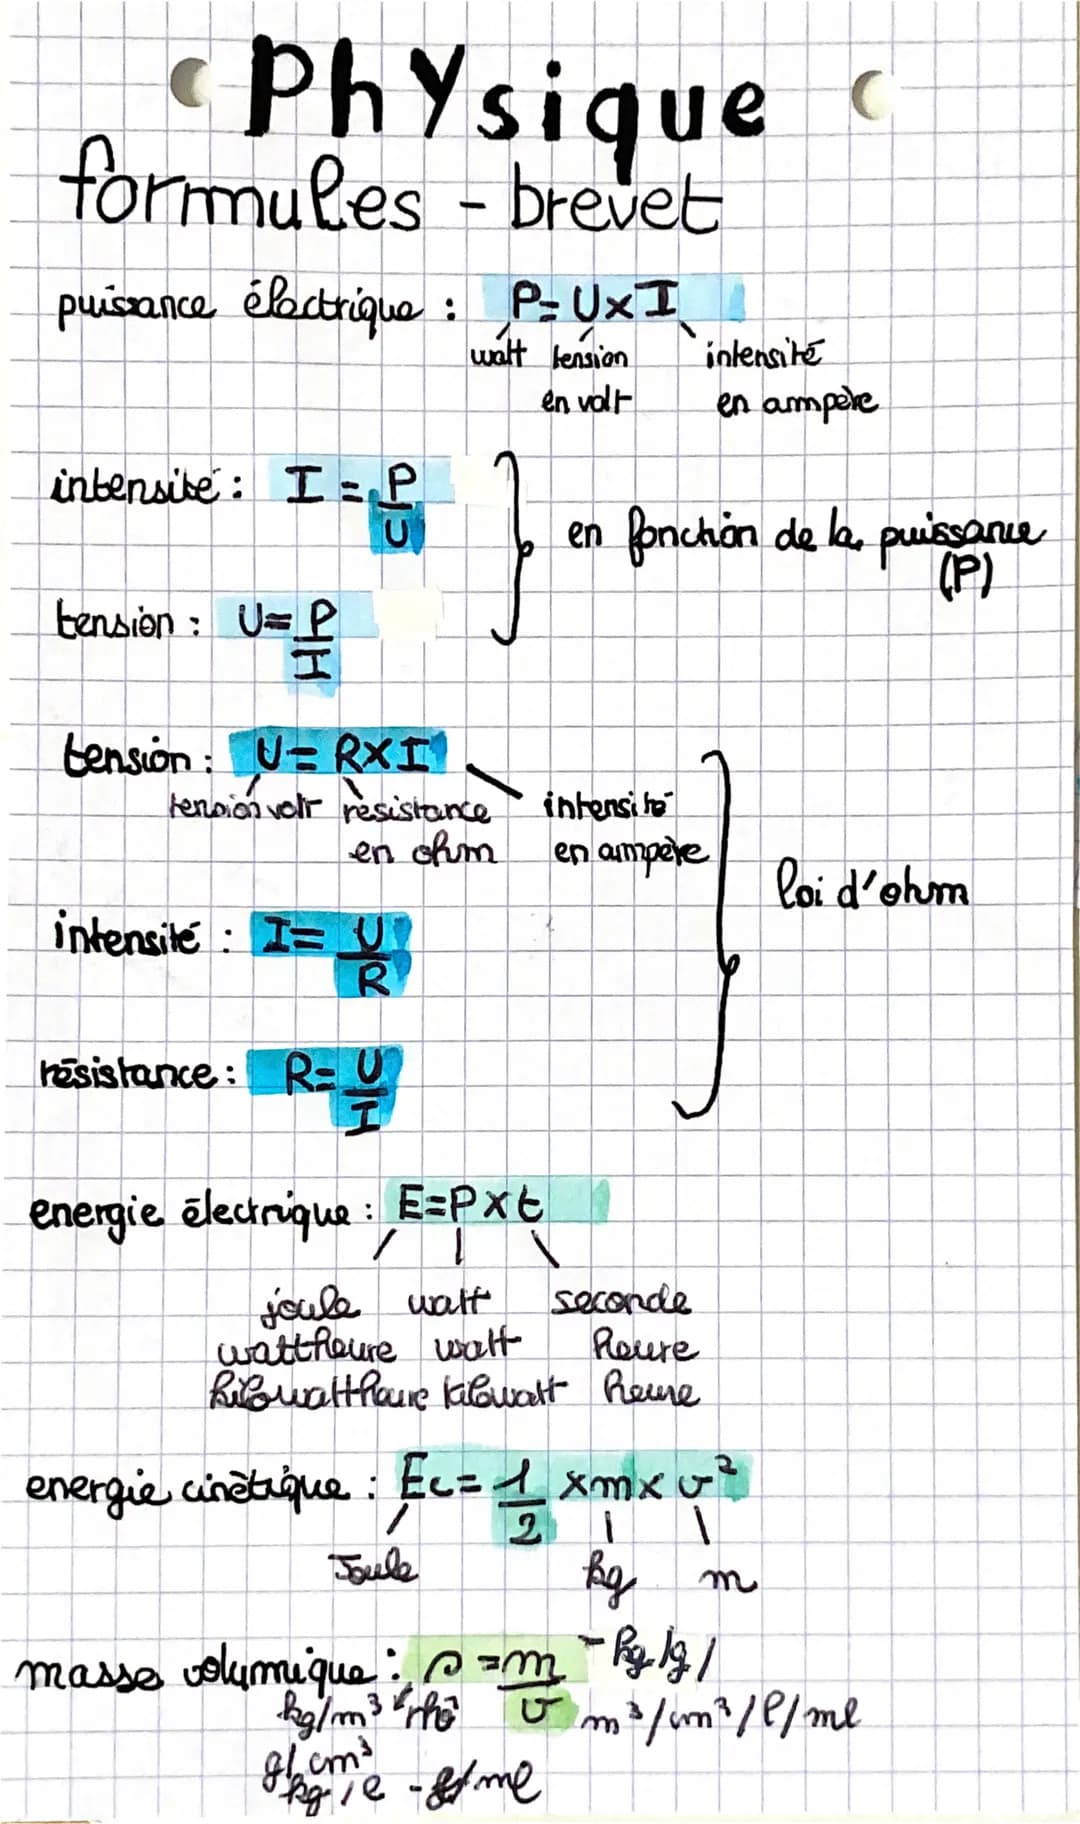 • PhYsique
formules - brevet
puissance électrique : P= U×I
watt tension intensité
en volt en ampère
intensité : I = P/U
en fonction de la puissance
(P)
tension : U= P/I
tension : U= R×I
tension volt résistance intensité
en ohm en ampère
loi d'ohm
intensité : I= U/R
résistance : R= U/I
energie électrique : E=P×t
joule watt seconde
wattheure watt heure
kilowattheure kilowatt heure
energie cinétique : Ec= 1/2 ×m× v²
Joule kg m
masse volumique : ρ = m/v - kg/g/
kg/m³ rhô m³/cm³/l/ml
g/cm³
kg/l - g/ml